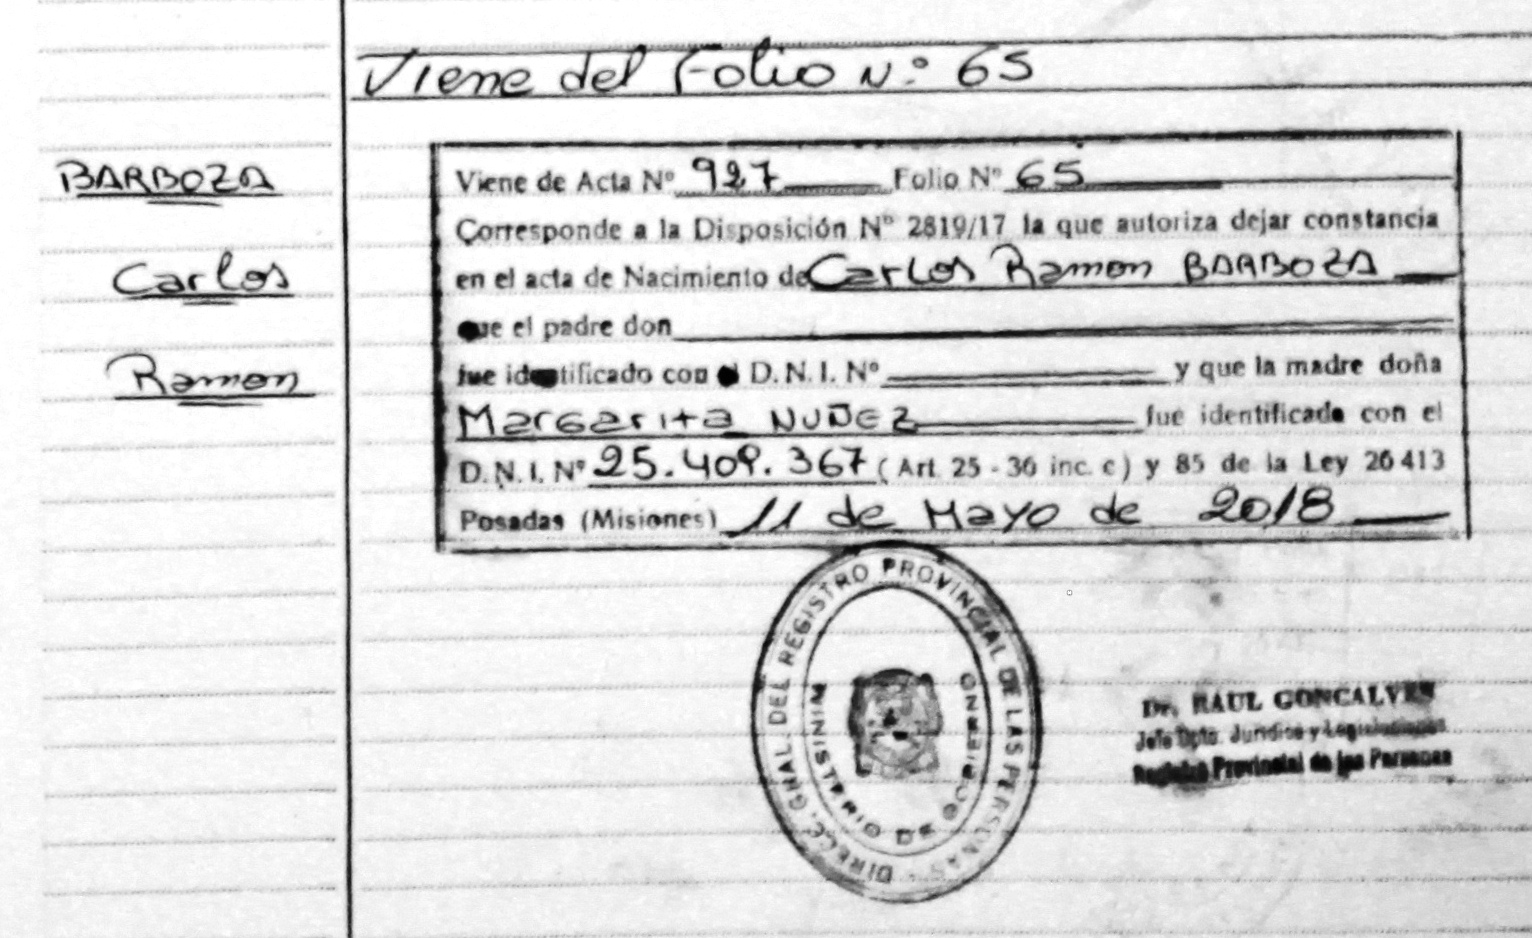 Viene del Folio N.º 65
BARBOZA
Carlos
Ramon
Viene de Acta Nº 927 Folio Nº 65
Corresponde a la Disposición Nº 2819/17 la que autoriza dejar constancia
en el acta de Nacimiento de Carlos Ramon BARBOZA
que el padre don
fue identificado con el D. N. I. Nº y que la madre doña
Margarita NUÑEZ fue identificada con el
D. N. I. Nº 25.409.367 (Art. 25 - 36 inc. c) y 85 de la Ley 26413
Posadas (Misiones) 11 de Mayo de 2018
DIRECC. GRAL. DEL REGISTRO PROVINCIAL DE LAS PERSONAS
MINISTERIO DE GOBIERNO
Dr. RAUL GONCALVES
Jefe Dpto. Jurídico y
Registro Provincial de las Personas